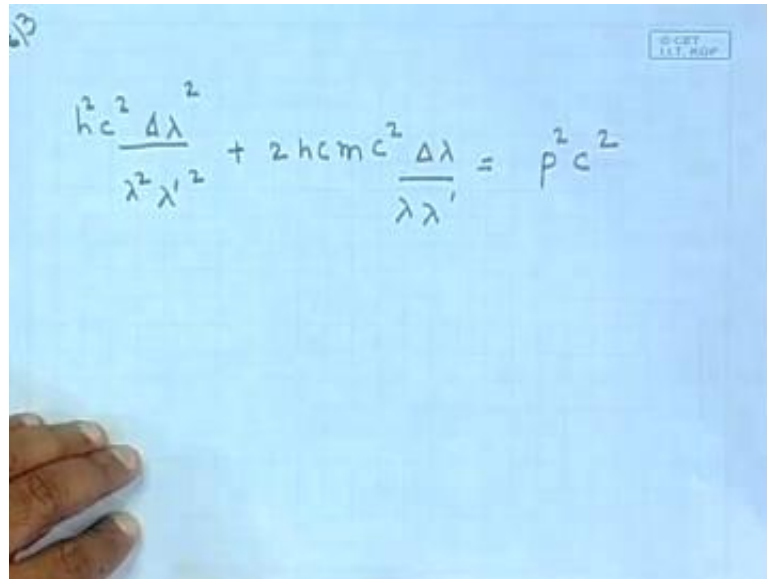 6/3
© CET
I.I.T. KGP
h²c² Δλ² / λ²λ'² + 2hcmc² Δλ / λλ' = p²c²